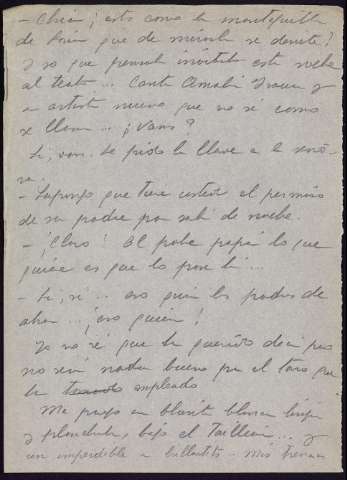 - Chica ¡esto como la mantequilla
de Soria que de mirarla se derrite!
Y yo que pensaba invitarla esta noche
al teatro... Canta Amalia Isaura y
un artista nuevo que no sé como
se llama... ¡Vamos?
Si, vamos. Le pido la llave a la seño-
ra.
- Supongo que tiene usted el permiso
de su padre para salir de noche.
- ¡Claro! El pobre papá lo que
quiere es que lo pase bien...
- Si, si... eso quieren los padres de
ahora... ¡eso quieren!
Yo no sé que ha querido decir pero
no será nada bueno por el tono que
ha empleado
Me pongo un blusita blanca limpia
y planchada, bajo el Tailleur... y
un imperdible de brillantitos - Mis trenzas